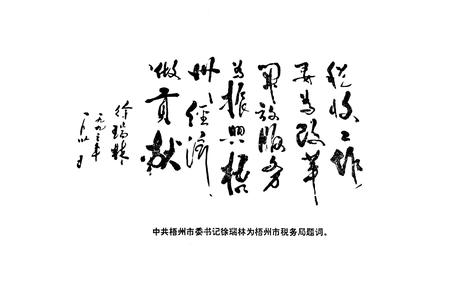 税收工作
要为改革
开放服务
为振兴梧
州经济
做贡献
徐瑞林
一九九三年
中共梧州市委书记徐瑞林为梧州市税务局题词。